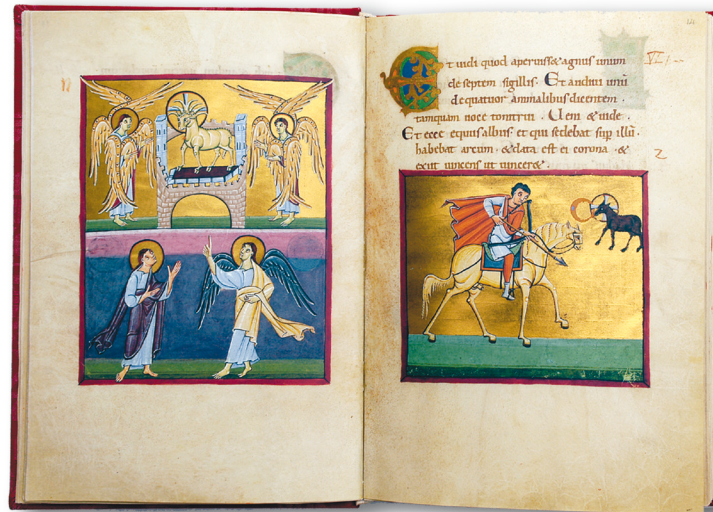 Et uidi quod aperuiss& agnus unum
de septem sigillis. Et audiui unū
de quatuor animalibus dicentem.
tamquam uoce tonitrui. Ueni & uide.
Et ecce equus albus. et qui sedebat sup illū.
habebat arcum. & data est ei corona. &
exiit uincens ut uincer&.
VI
2